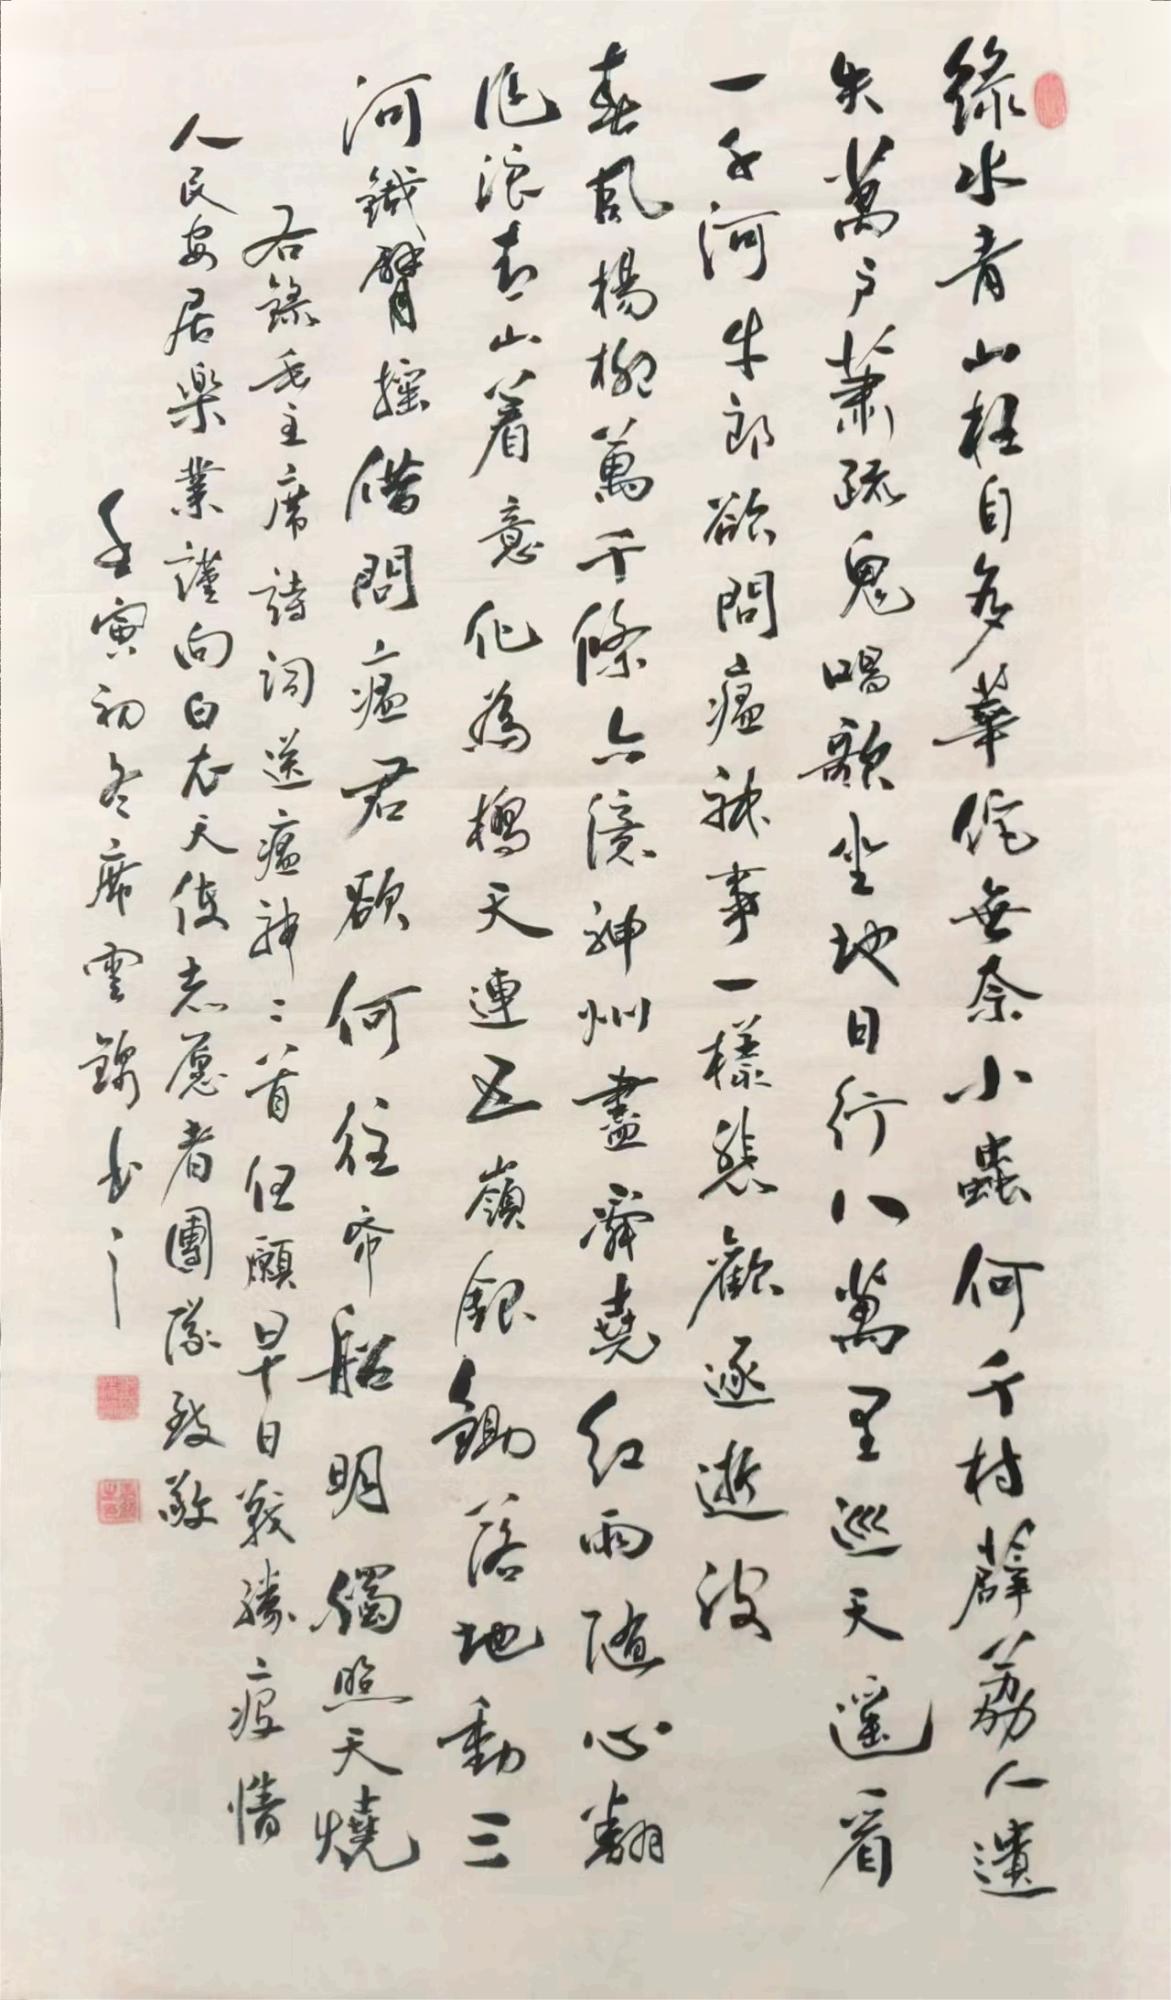 綠水青山枉自多華佗無奈小蟲何千村薜荔人遺
失萬戶蕭疏鬼唱歌坐地日行八萬里巡天遥看
一千河牛郎欲問瘟神事一樣悲歡逐逝波
春風楊柳萬千條六億神州盡舜堯紅雨随心翻
作浪青山着意化為橋天連五嶺銀鋤落地動三
河鐵臂摇借問瘟君欲何往帋船明燭照天燒
右錄毛主席詩詞送瘟神二首但願早日戰勝疫情
人民安居樂業謹向白衣天使志愿者團隊致敬
壬寅初冬席雲錦書